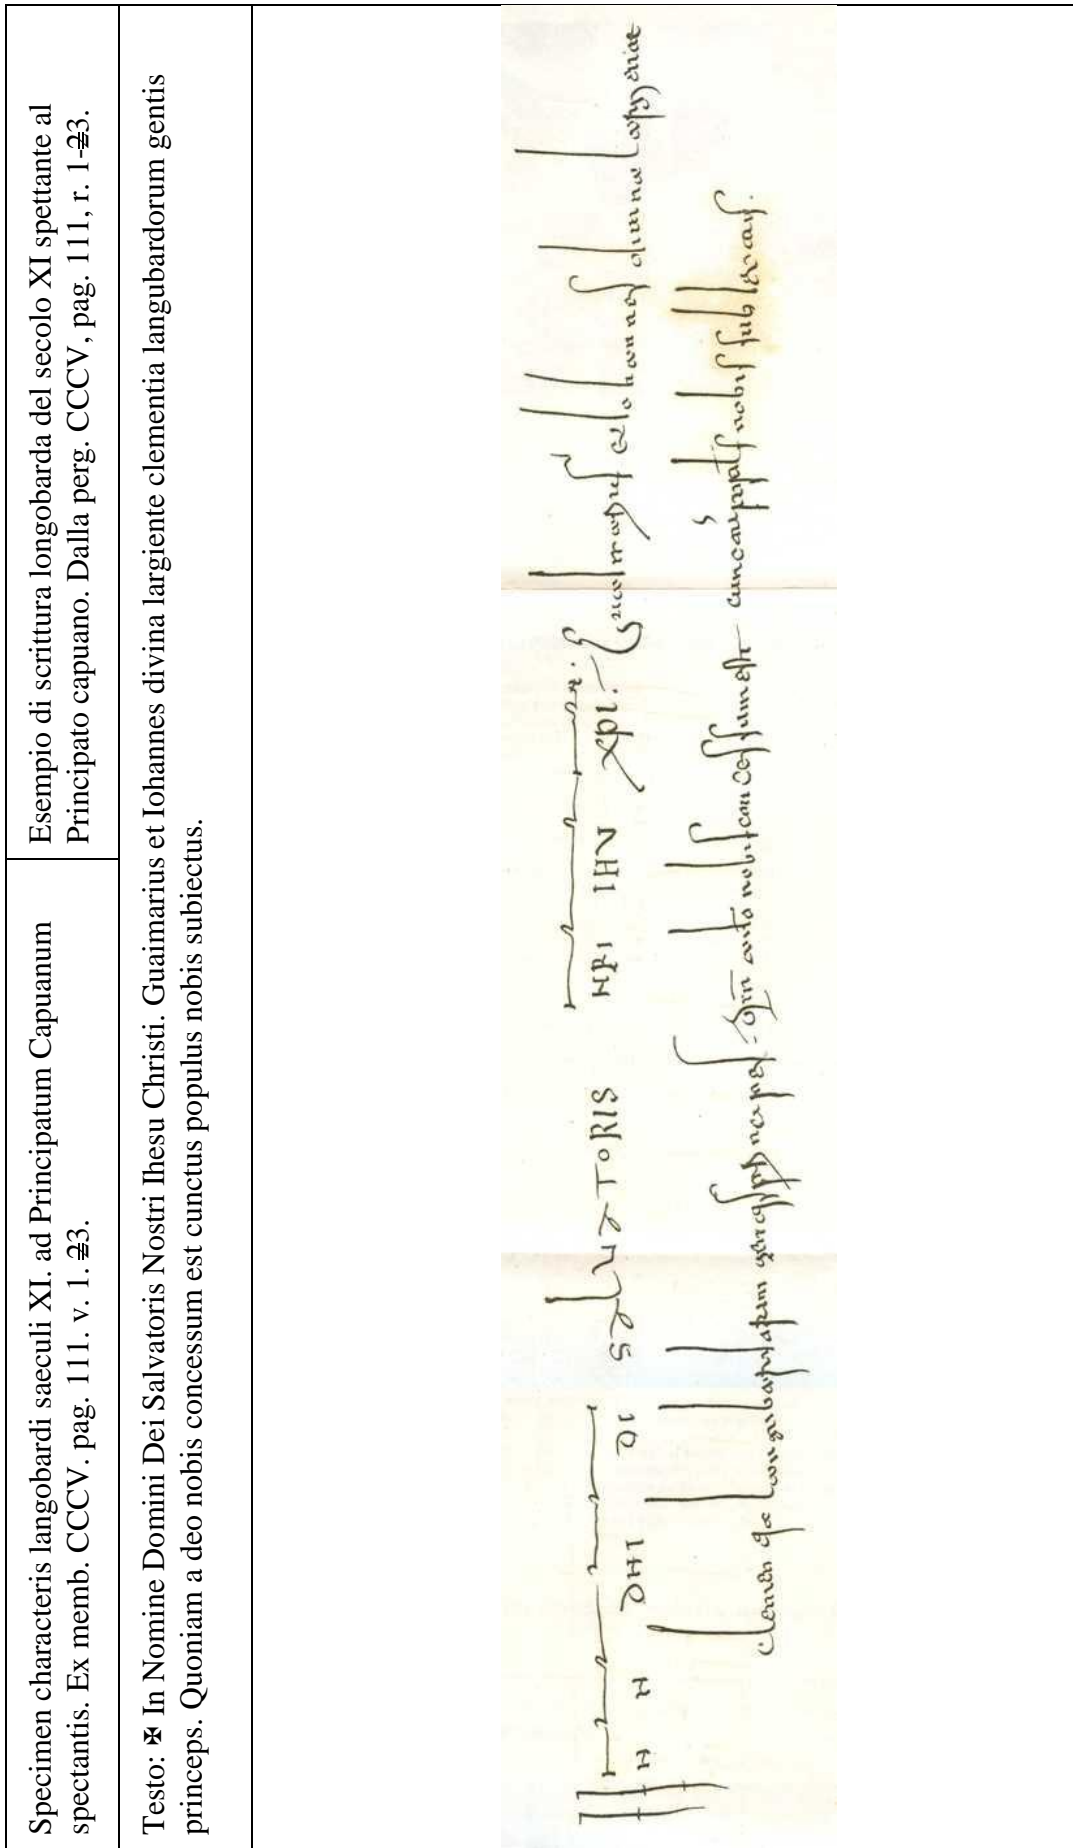 Specimen characteris langobardi saeculi XI. ad Principatum Capuanum
spectantis. Ex memb. CCCV. pag. 111. v. 1.23.
Esempio di scrittura longobarda del secolo XI spettante al
Principato capuano. Dalla perg. CCCV, pag. 111, r. 1-23.
Testo: ✠ In Nomine Domini Dei Salvatoris Nostri Ihesu Christi. Guaimarius et Iohannes divina largiente clementia langubardorum gentis
princeps. Quoniam a deo nobis concessum est cunctus populus nobis subiectus.
N N DNI DI SALVATORIS NRI IHV XPI. Guaimarius et Iohannes divina largiente
clementia langubardorum gentis princeps = Qm a do nobis concessum est cunctus populs nobis subiectus.